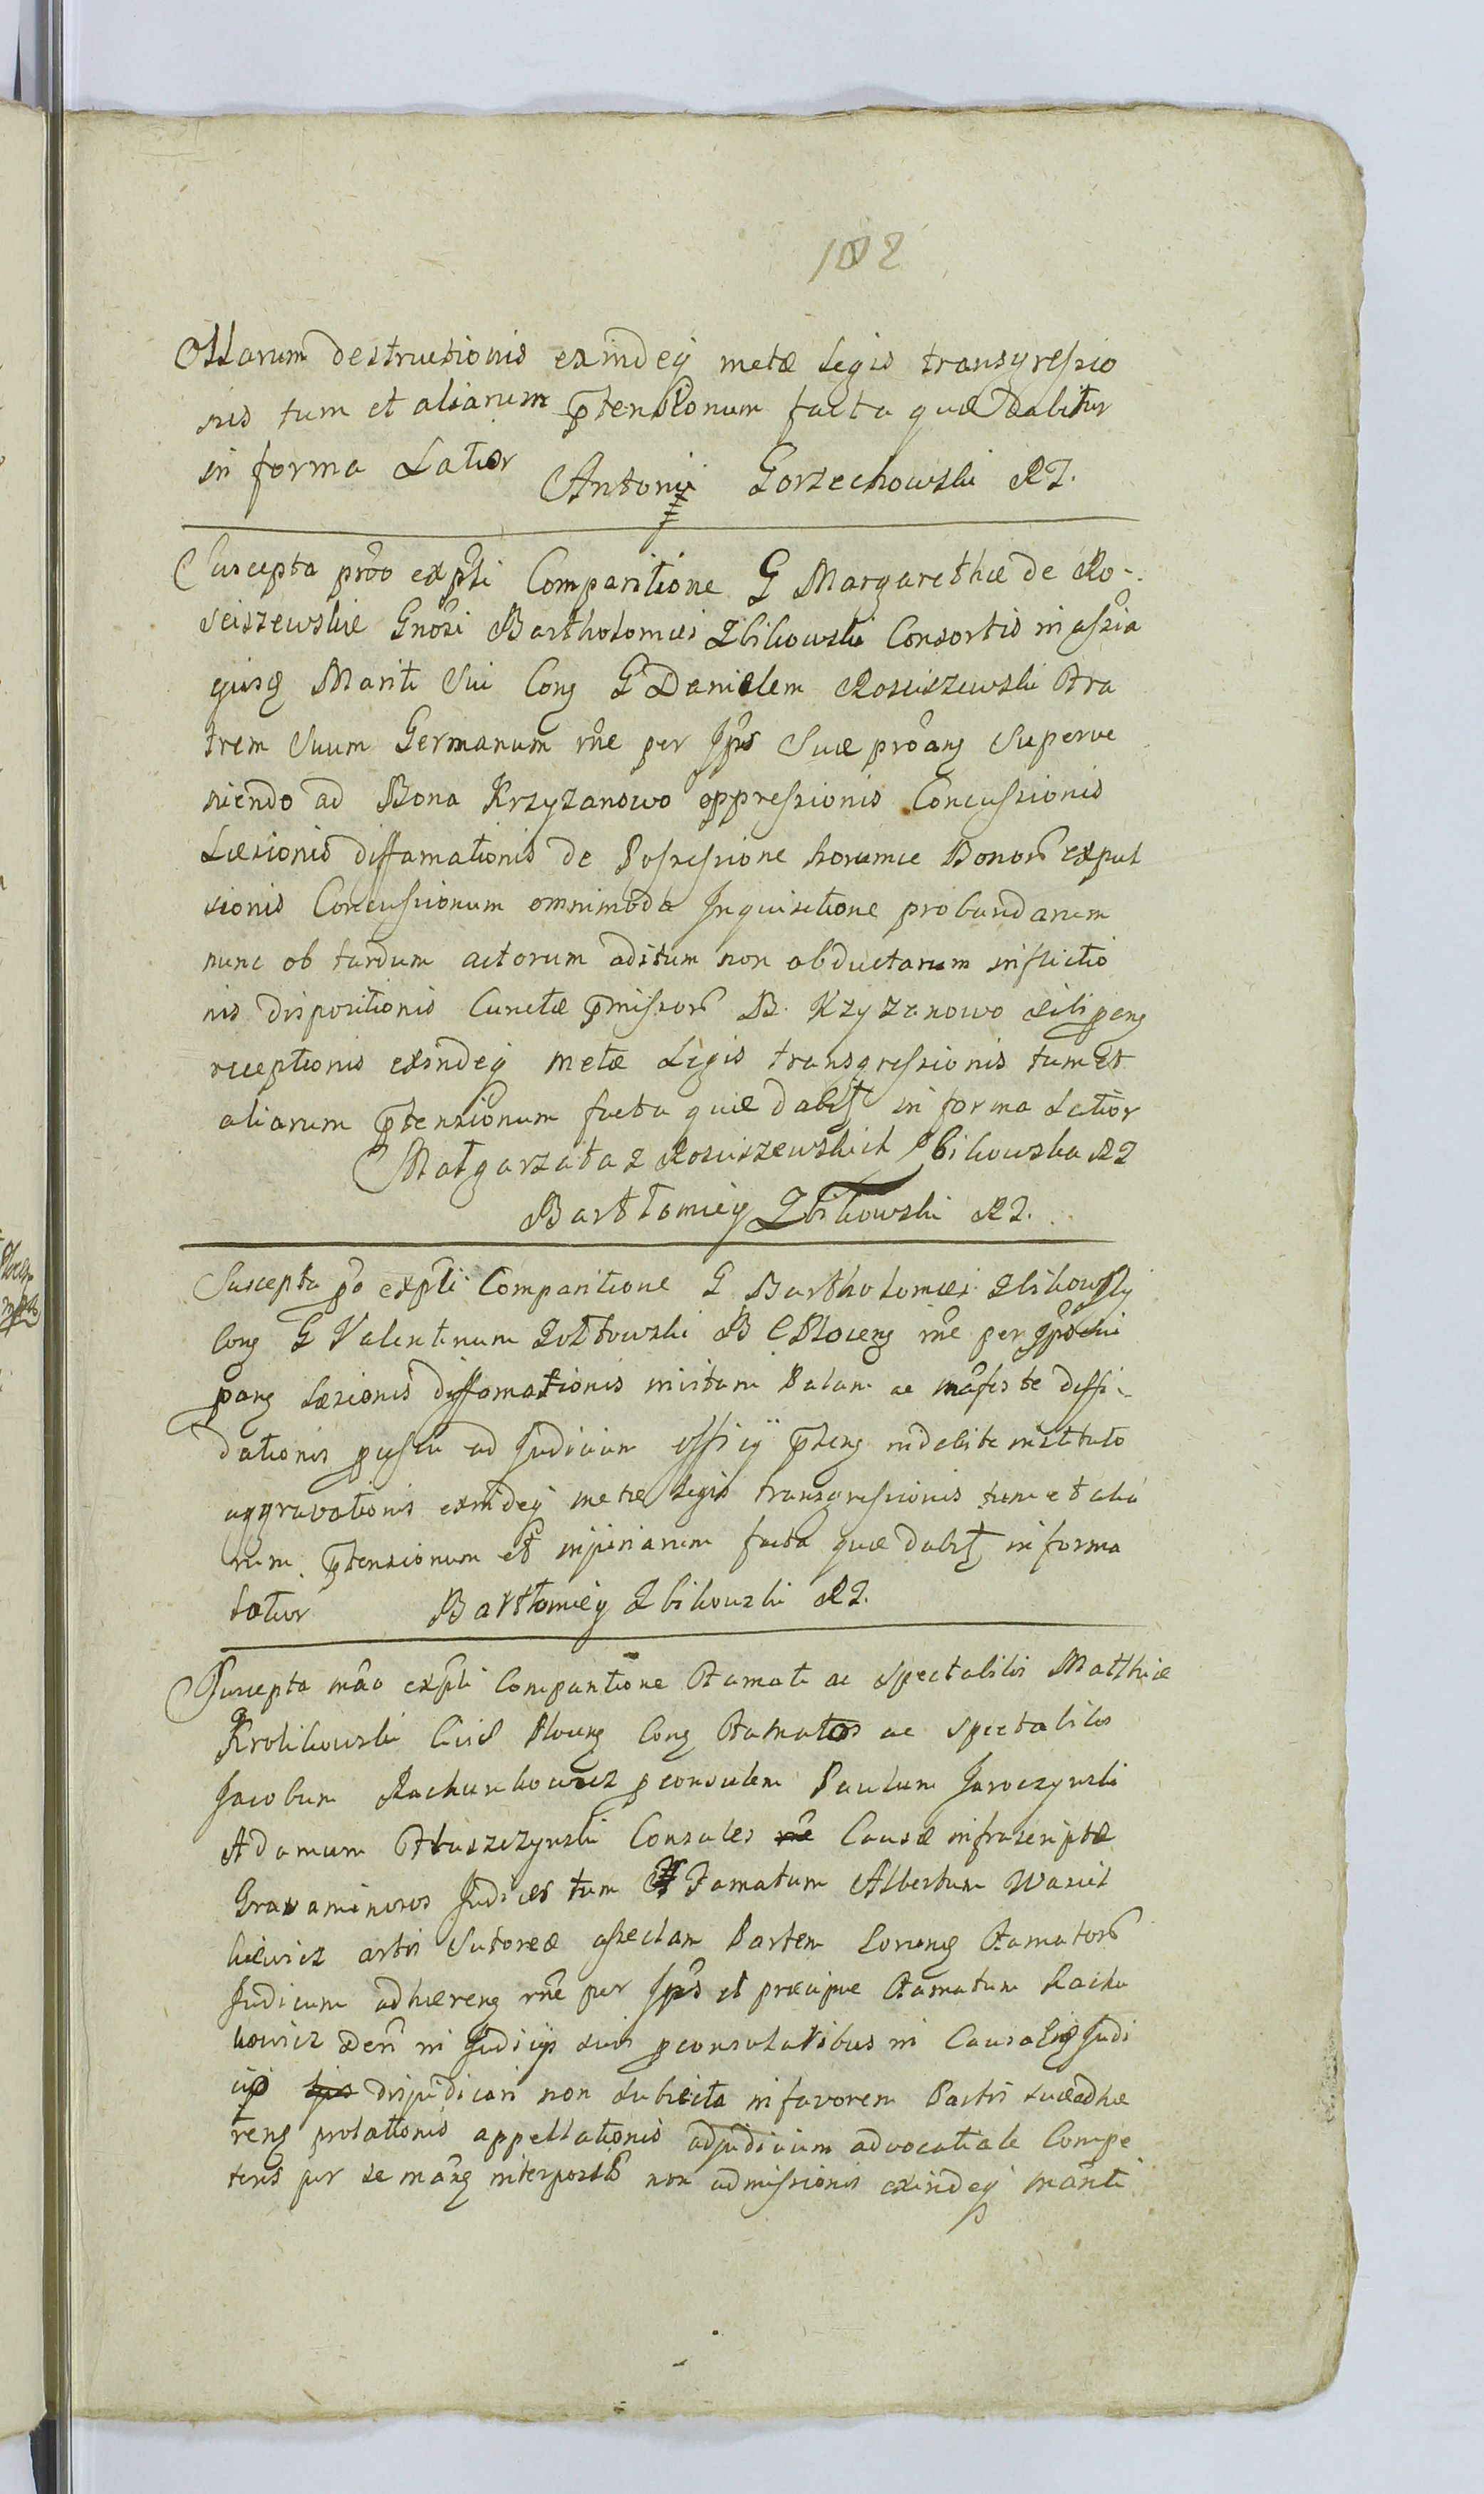 182
Ollarum destructionis exindeq metæ Legis transgressio
nis tum et aliarum ptensionum facta quæ dabitur
in forma Latior Antoni Gorzechowski RZ.
Suscepta proo expsti Comparitione G Margarethæ de Ro-
sciszewskie Gnosi Bartholomæi Zbikowski Consortis in assia
ejusq Mariti Sui Cong G Danielem Rosciszewski Fra
trem Suum Germanum rne per Ipus Suæ proang Superve
niendo ad Bona Krzyzanowo oppressionis Concussionis
Læsionis diffamationis de Possessione horumce Bonor expul
sionis Concussionum omnimoda Inquisitione probandarum
nunc ob tardum actorum aditum non obductarum inflictio
nis dispositionis Cunctæ pmissor B. Krzyzanowo sibi peng
receptionis exindeq metæ Legis transgressionis tum et
aliarum ptensionum facta quæ dabit in forma Latior
Małgarzata z Rosciszewskich Zbikowska RZ
Bartłomiey Zbikowski RZ.
Suscepta po expsti Comparitione G Bartholomæi Zbikowsky
Cong G Valentinum Zołtowski B C Ploceng rne per Ipus Sui
pang Læsionis diffamationis invitam Palam ac mafeste diffi-
dationis ad Judicium officij pteng indebite instituto
aggravationis exindeq metæ Legis transgressionis tum et alia
rum ptensionum et injuriarum facta quæ dabit in forma
Latior Bartłomiey Zbikowski RZ.
Suscepta mao expsti Comparitione Famati ac Spectabilis Matthiæ
Krolikowski Civis Ploceng Cong Famatos ac Spectabiles
Jacobum Rachunkowicz pconsulem Paulum Jaroczynski
Adamum Consules rne Causæ infrascriptæ
Gravaminosos Judices tum Famatum Albertum Wasiel
kiewicz artis Sutoreæ asseclam Partem Eorung Famator
Judicum adhæreng rne per Ipus et præcipue Famatum Rachu
kowicz in Judicijs suis pconsularibus in Causa Judi
cijs dijudicari non subjecta in favorem Partis suæ adhæ
reng prolationis appellationis ad Judicium advocatiale Compe
tens per se mang interpositæ non admissionis exindeq